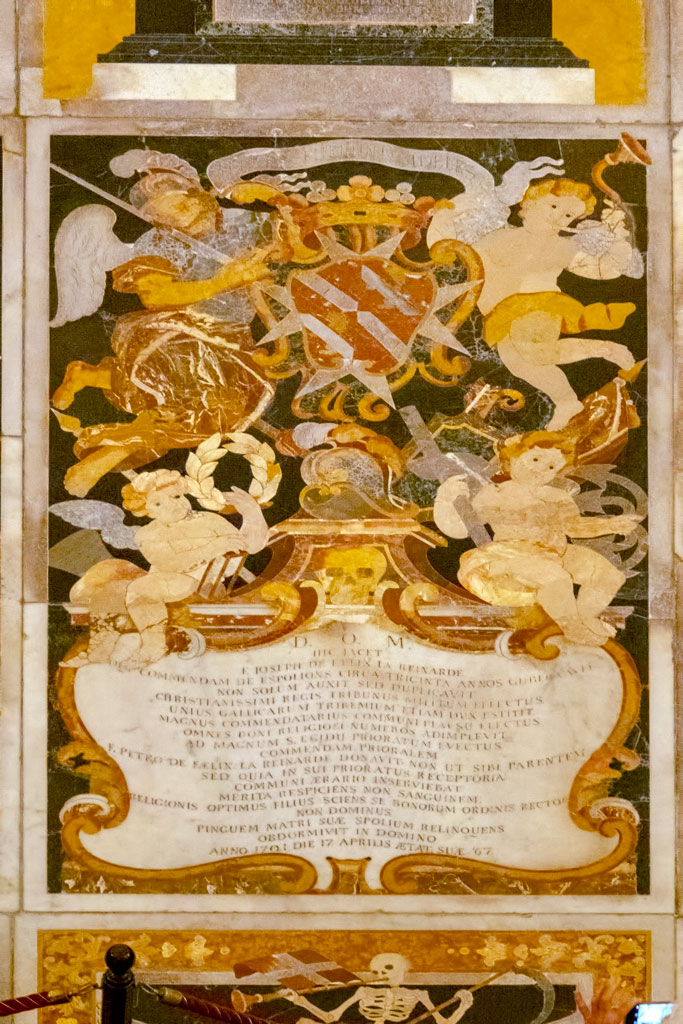 D. O. M.
HIC JACET
F. JOSEPH DE FELIX LA REINARDE
COMMENDAM DE ESPOLIONS CIRCA TRICINTA ANNOS
NON SOLUM AUXIT SED DUPLICAVIT
CHRISTIANISSIMI REGIS TRIBUNUS MILITUM ELLECTUS
UNIUS GALLICARUM TRIREMIUM ETIAM DUX EXTITIT
MAGNUS COMMENDATARIUS COMMUNI PLAUSU ELECTUS
OMNES BONI RELIGIOSI NUMEROS ADIMPLEVIT
AD MAGNUM S. EGIDII PRIORATUM EVECTUS
COMMENDAM PRIORALEM
F. PETRO DE FÆLIX LA REINARDE DONAVIT NON UT SIBI PARENTEM
SED QUIA IN SUI PRIORATUS RECEPTORIA
COMMUNI ÆRARIO INSERVIEBAT
MERITA RESPICIENS NON SANGUINEM,
RELIGIONIS OPTIMUS FILIUS SCIENS SE BONORUM ORDINIS RECTOREM
NON DOMINUS
PINGUEM MATRI SUÆ SPOLIUM RELINQUENS
OBDORMIVIT IN DOMINO
ANNO DIE 17 APRILIS ÆTAT. SUÆ 67